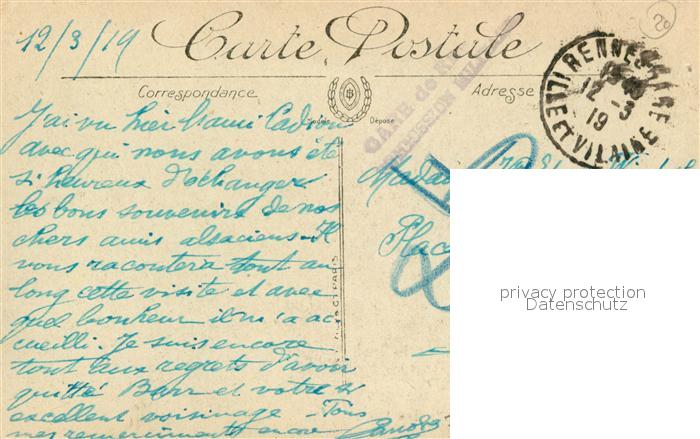 12/3/19
Carte Postale
Correspondance
Adresse
Modèle Déposé
20
RENNES GARE
12 -3
19
ILLE ET VILAINE
GARE de
COMMISSION MIL
J'ai vu hier l'ami Cadiou
avec qui nous avons été
si heureux d'échanger
les bons souvenirs de nos
chers amis alsaciens. Il
vous racontera tout au
long cette visite et avec
quel bonheur il m'a ac
cueilli. Je suis encore
tout aux regrets d'avoir
quitté Barr et votre si
excellent voisinage. Tous
mes remerciements encore
Madame
Place
PARIS
privacy protection
Datenschutz